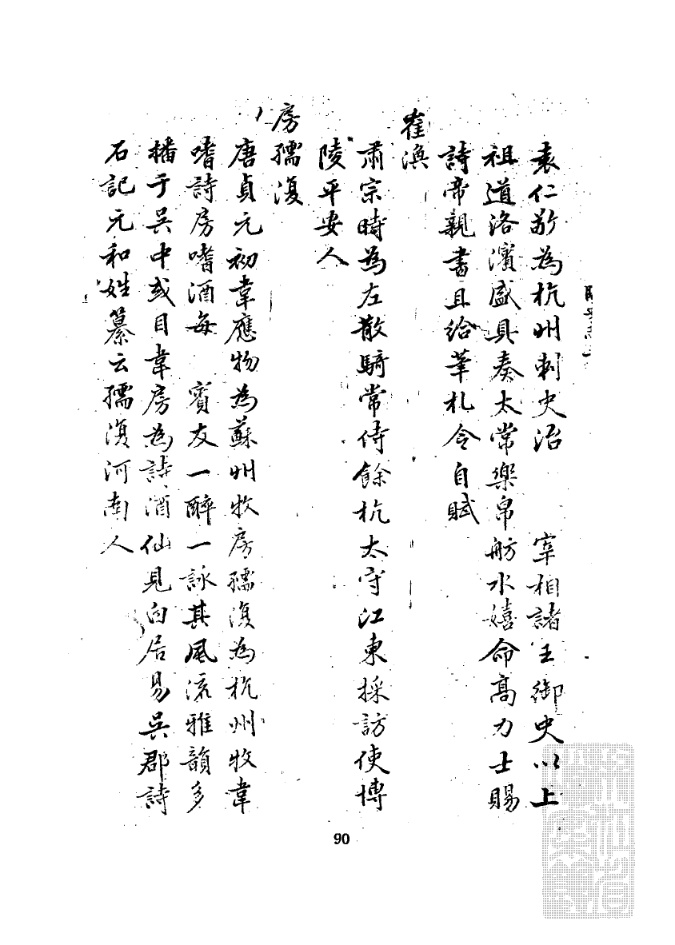 袁仁敬為杭州刺史治 宰相諸王御史以上
祖道洛濱盛具奏太常樂帛舫水嬉命高力士賜
詩帝親書且給筆札令自賦
崔渙
肅宗時為左散騎常侍餘杭太守江東採訪使博
陵平安人
房孺復
唐貞元初韋應物為蘇州牧房孺復為杭州牧韋
嗜詩房嗜酒每 賓友一醉一詠其風流雅韻多
播于吳中或目韋房為詩酒仙見白居易吳郡詩
石記元和姓纂云孺復河南人
90